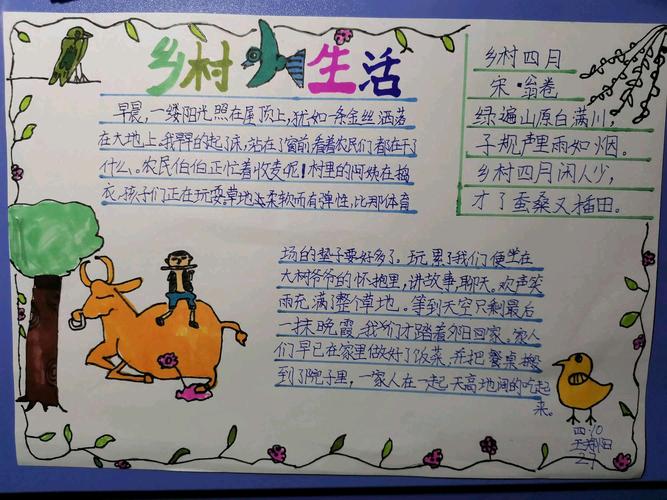 乡村生活
早晨，一缕阳光照在屋顶上，犹如一条金丝洒落
在大地上。我早早的起了床，站在了窗前看着农民们都在干了
什么。农民伯伯正忙着收麦呢！村里的阿姨在搞
衣，孩子们正在玩耍。草地上柔软而有弹性，比那体育
场的垫子要好多了。玩累了我们便坐在
大树爷爷的怀抱里，讲故事，聊天。欢声笑
雨充满了整个草地。等到天空只剩最后
一抹晚霞，我们才踏着夕阳回家。家人
们早已在家里做好了饭菜，并把餐桌搬
到了院子里，一家人在一起天高地阔的吃起
来。
乡村四月
宋·翁卷
绿遍山原白满川，
子规声里雨如烟。
乡村四月闲人少，
才了蚕桑又插田。
四.10